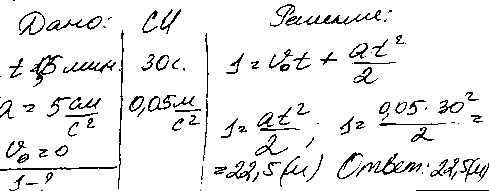 Дано: СИ Решение:
t = 0,5 мин 30 с. s = v₀t + at²/2
a = 5 см/с² 0,05 м/с² s = at²/2 ; s = 0,05 · 30²/2 =
v₀ = 0 = 22,5 (м) Ответ: 22,5 (м)
s - ?